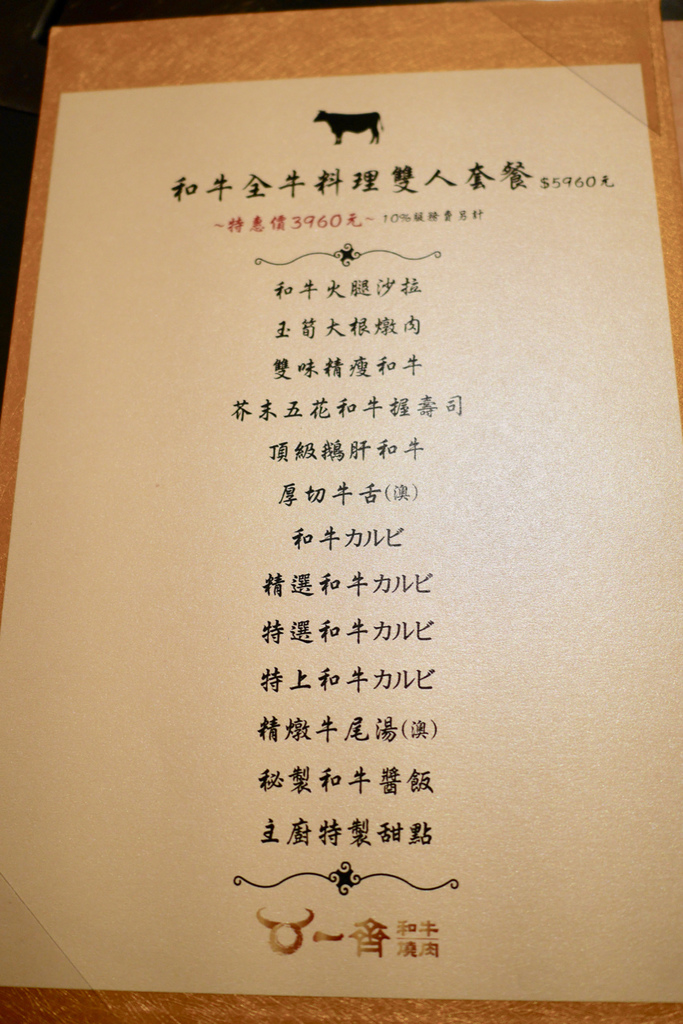 和牛全牛料理雙人套餐 $5960元
~特惠價3960元~ 10%服務費另計
和牛火腿沙拉
玉筍大根燉肉
雙味精瘦和牛
芥末五花和牛握壽司
頂級鵝肝和牛
厚切牛舌(澳)
和牛カルビ
精選和牛カルビ
特選和牛カルビ
特上和牛カルビ
精燉牛尾湯(澳)
秘製和牛醬飯
主廚特製甜點
一齊 和牛
燒肉